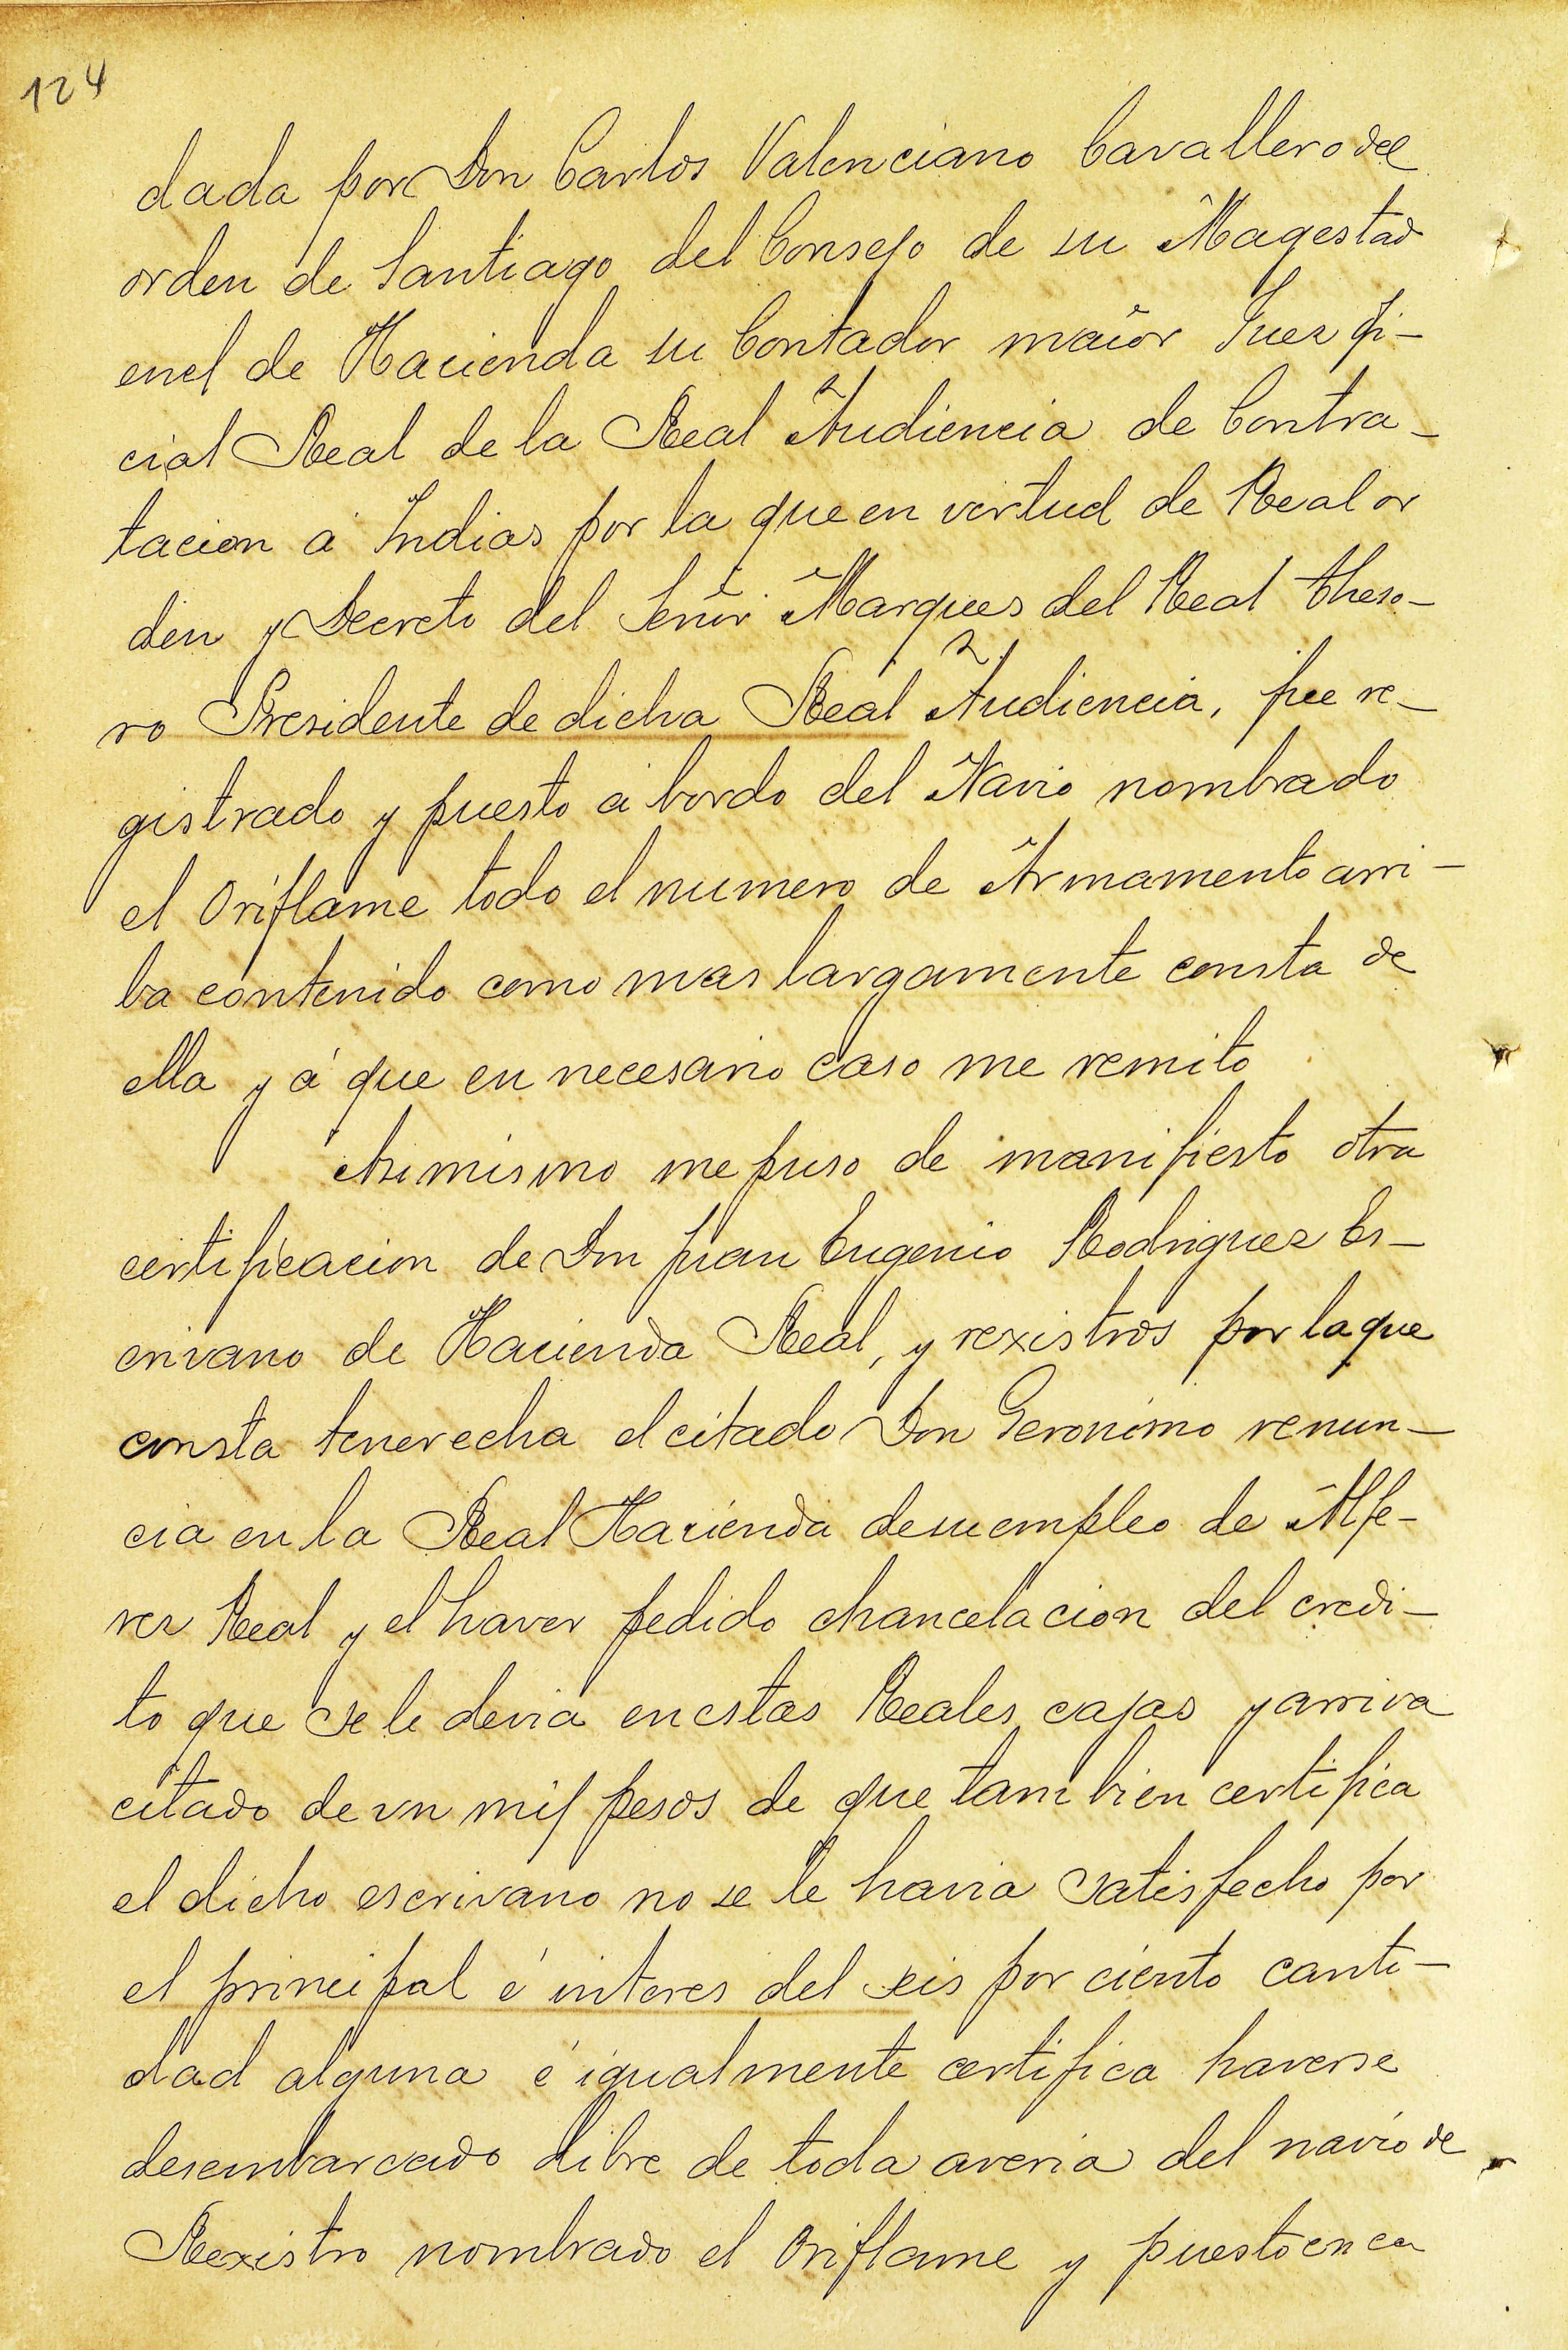 124
dada por Don Carlos Valenciano Cavallero del
orden de Santiago del Consejo de su Magestad
en el de Hacienda su Contador maior Juez ofi-
cial Real de la Real Audiencia de Contra-
tacion á Indias por la que en virtud de Real or
den y Decreto del Señor Marques del Real theso-
ro Presidente de dicha Real Audiencia, fue re-
gistrado y puesto á bordo del Navio nombrado
el Oriflame todo el numero de Armamento arri-
ba contenido como mas largamente consta de
ella y á que en necesario caso me remito
Asi mismo me puso de manifiesto otra
certificacion de Don Juan Eugenio Rodriguez Es-
crivano de Hacienda Real, y rexistros por la que
consta tener echa el citado Don Geronimo renun-
cia en la Real Hacienda de su empleo de Alfe-
rez Real y el haver pedido chancelacion del credi-
to que se le devia en estas Reales cajas y arriva
citado de vn mil pesos de que tambien certifica
el dicho escrivano no se le havia satisfecho por
el principal é interes del seis por ciento canti-
dad alguna é igualmente certifica haverse
desembarcado libre de toda averia del navio de
Rexistro nombrado el Oriflame y puesto en ca